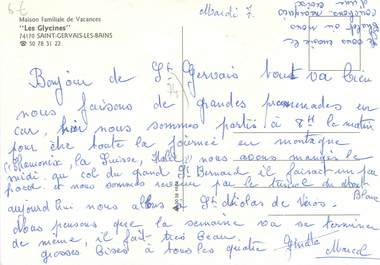 Mardi 7.
Maison Familiale de Vacances
"Les Glycines"
74170 SAINT-GERVAIS-LES-BAINS
☎ 50 78 31 22
Bonjour de St Gervais tout va bien
nous faisons de grandes promenades en
car, hier nous sommes partis à 8H le matin
pour être toute la journée en montagne
Chamonix, la Suisse, nous avons manger le
midi au col du grand St Bernard il faisait un peu
froid et nous sommes revenus par le tunnel du Mont
Blanc
aujourd'hui nous allons à St Nicolas de Véroce.
Nous pensons que la semaine va se terminer
de même, il fait très beau
grosses bises à tous les quatre Ginette
Marcel